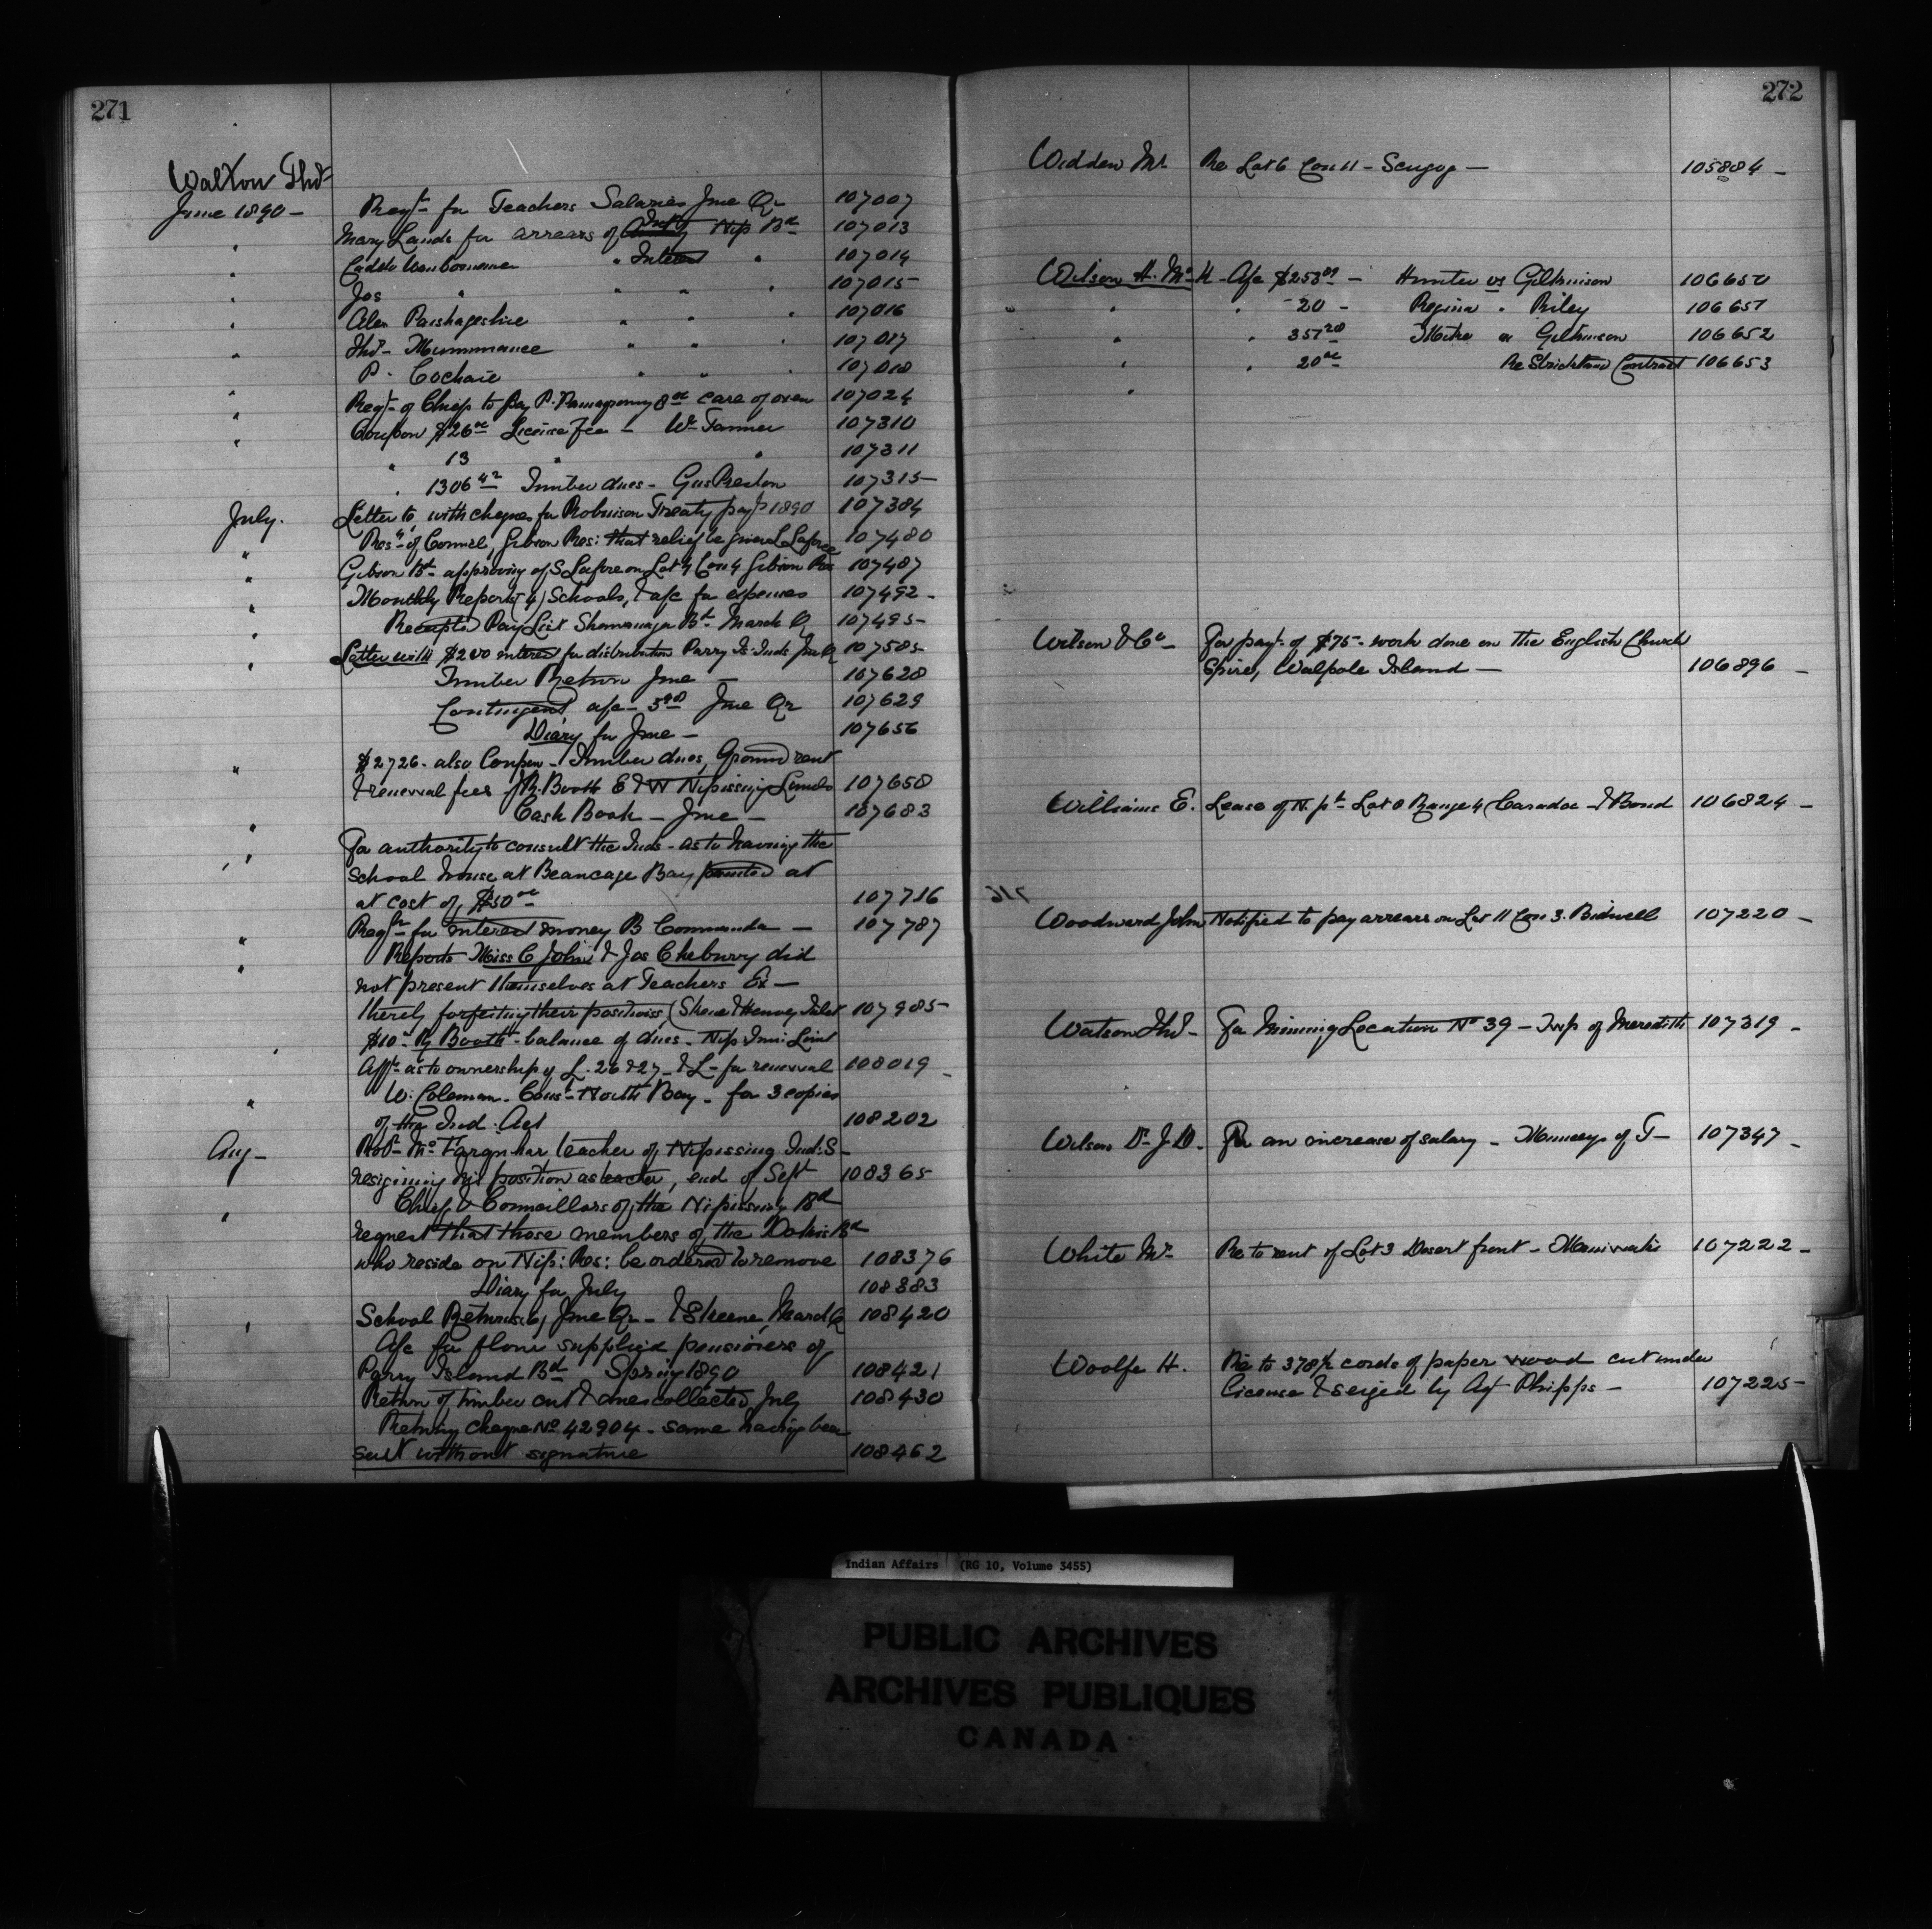 271
Walton Thos
June 1890 - Reqn for Teachers Salaries June Qr 107007
" Mary Lands for arrears of Int Nip Bd 107013
" " Interest " 107014
" Jos " " " 107015
" Alex " " " 107016
" Thos " " " 107017
" P. Cochaie " " " 107018
" Reqt of Chiefs to pay P. 8.00 care of oxen 107024
" Coupon $26.00 License fee - Wm Tanner 107310
" " 13 " " 107311
" 1306.42 Timber dues - Gus Preston 107315
July. Letter to, with cheques for Robinson Treaty payt 1890 107384
" Resn of Council, Gibson Res: that relief be given L Laforce 107480
" Gibson Bd approving of S Laforce on Lot 4 Con 4 Gibson Res 107487
" Monthly Reports (4) Schools, & a/c for expenses 107492 -
" Receipted Pay List Shawanaga Bd March Q 107495
" Letter with $200 interest for distribution Parry Is. Inds June Q 107585
Timber Return June - 107628
Contingent a/c - 5.90 June Qr 107629
Diary for June - 107656
" $2726. also Coupon - Timber dues, Ground rent
& renewal fees J R. Booth E & W Nipissing Limits 107658
" Cash Book - June - 107683
" For authority to consult the Inds - as to having the
School house at Beaucage Bay painted at
at cost of $50.00 107786
" Reqn for interest money B Commanda - 107787
" Reports Miss C John & Jos Cheburry did
not present themselves at Teachers Ex -
thereby forfeiting their positions (Skene & Henvey Inlet 107985
" $10 - Booth - balance of dues - Nip Limit
Afft as to ownership of L. 26 & 27 - & L - for renewal 108019 -
" W. Coleman - Cons - North Bay - for 3 copies
of the Ind. Act 108202
Aug - Robt McFarquhar teacher of Nipissing Ind: S -
resigning his position as teacher, end of Sept 108365
" Chief & Councillors of the Nipissing Bd
request that those members of the Dokis Bd
who reside on Nip: Res: be ordered to remove 108376
Diary for July 108383
" School Returns, June Qr - & Skeene, March Q 108420
A/c for flour supplied pensioners of
Parry Island Bd Spring 1890 108421
Return of timber cut & dues collected July 108430
Returning cheque No 42904 - same having been
sent without signature 108462
272
Widden Mr. Re Lot 6 Con 11 - Scugog - 105884 -
Wilson H. McK - A/c $253.09 - Hunter vs Gilkinson 106650
" " 20 - Regina " Riley 106651
" " 357.20 " Gilkinson 106652
" " 20.00 Re Strickland Contract 106653
"
Wilson & Co - For payt of $75 - work done on the English Church
Spire, Walpole Island - 106896 -
Williams E. Lease of N. pt Lot 8 Range 4 Caradoc - & Bond 106824 -
Woodward John Notified to pay arrears on Lot 11 Con 3. Bidwell 107220 -
Watson Thos - For Mining Location No 39 - Twp of Meredith 107319 -
Wilson Dr. J. D. For an increase of salary - Munceys of T - 107347 -
White Mr. Re to rent of Lot 3 Desert front - Maniwaki 107222 -
Woolfe H. Re to 378½ cords of paper wood cut under
License & seized by Agt Phipps - 107225
Indian Affairs (RG 10, Volume 3455)
PUBLIC ARCHIVES
ARCHIVES PUBLIQUES
CANADA